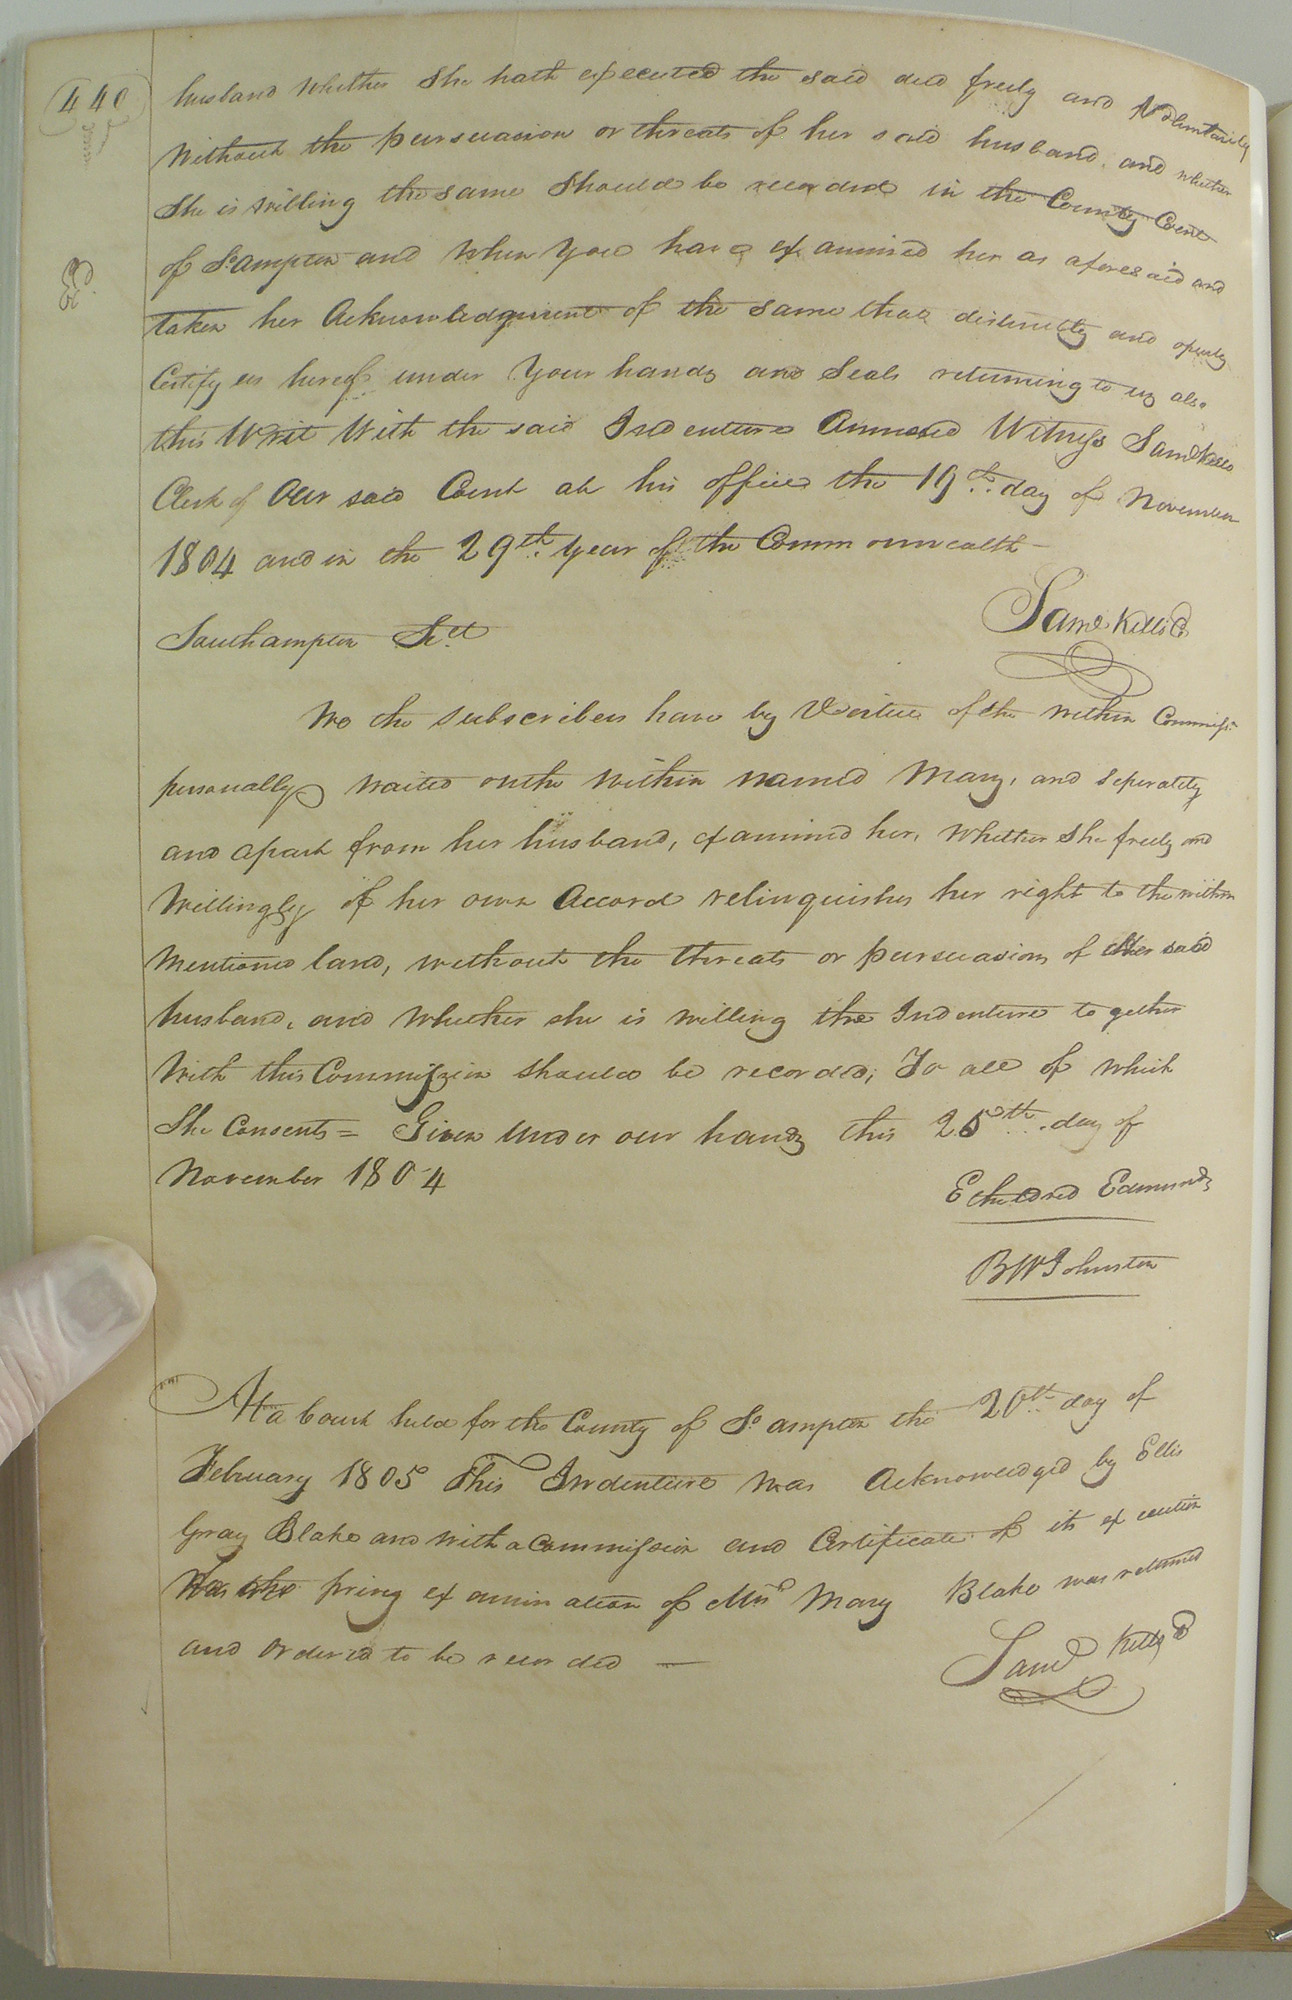 440
husband whether she hath executed the said deed freely and Voluntarily
Without the pursuasion or threats of her said husband, and whether
She is willing the same Should be recorded in the County Court
of So.ampton and when you have examined her as aforesaid and
taken her Acknowledgment of the same that distinctly and openly
Certify us hereof under Your hands and Seals returning to us also
this Writ With the said Indenture Annexed Witness Saml Kello
Clerk of Our said Court at his office the 19th. day of November
1804 and in the 29th. Year of the Commonwealth -
Southampton Sct.
Saml Kello C
We the subscribers have by Vertue of the within Commissn
personally waited on the within named Mary, and seperately
and apart from her husband, examined her, Whether she freely and
Willingly of her own Accord relinquishes her right to the within
Mentioned land, without the threats or pursuasions of her said
husband, and whether she is willing the Indenture together
With this Commission should be recorded; To all of which
She Consents = Given Under our hands this 25th. day of
November 1804
Etheldred Edmunds
BW Johnston
At a Court held for the County of So. ampton the 20th. day of
February 1805 This Indenture was Acknowledged by Ellis
Gray Blake and with a Commission and Certificate of its execution
for the privy examination of Mrs Mary Blake was returned
and ordered to be recorded —
Saml Kello C